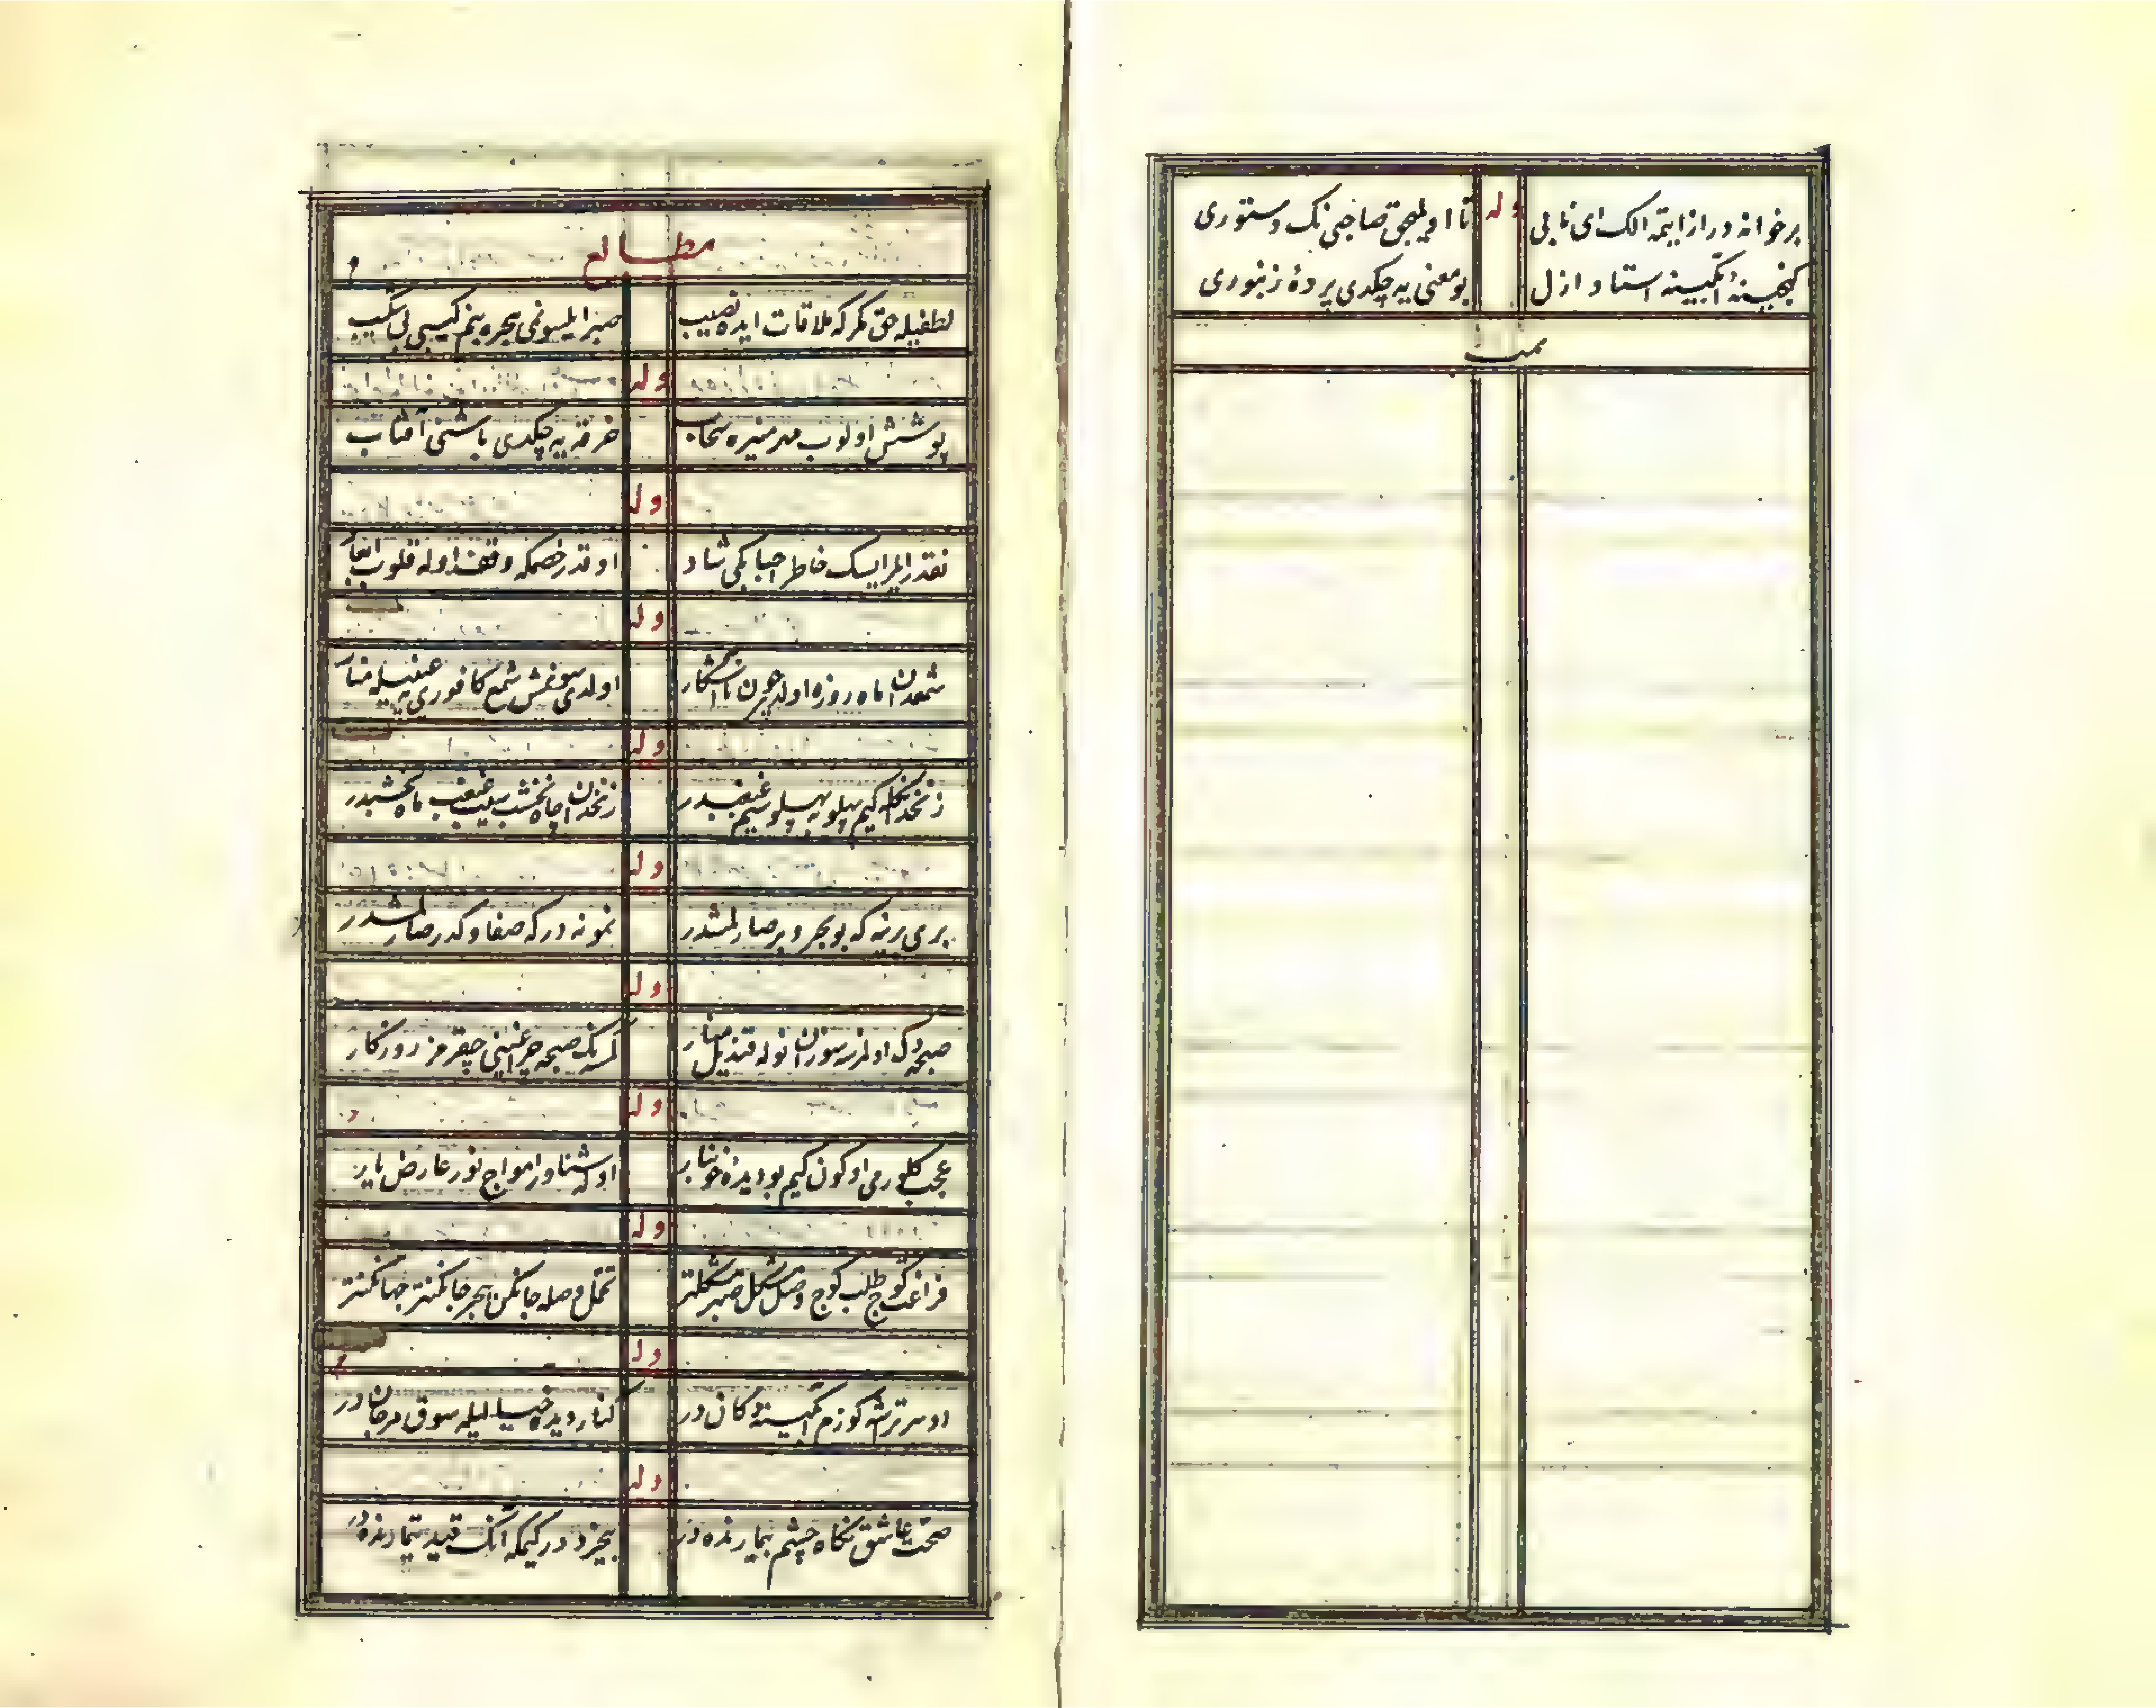 برخوانه دراز ایتمه الک ای نابی وله تا اولمیجق صاحبنک دستوری
گنجینهٔ آبگینه استاد ازل بو معنی یه چکدی پردهٔ زنبوری
تمت
مطالع
لطفیله حق مکر که ملاقات ایده نصیب صبر ایلسونمی هجره بنم کیبی بی شکیب
وله
پوشش اولوب مهر منیره سحاب خرقه یه چکدی باشنی آفتاب
وله
نقدر ایلر ایسک خاطر احبابکی شاد او قدر خصمکه وقف اوله قلوب
وله
شمعدن ماه روزه اولدی چون آشکار اولدی شمع کافوری یه منار
وله
زنخدانکله کیم پهلو به پهلو سیم غبغبدر زنخدان چاه نخشب سیب غبغب ماه نخشبدر
وله
بری برینه که بو بحر و بر صارلمشدر نمونه درکه صفا و کدر صارلمشدر
وله
صبحه دک اولنرسه سوزان نوله قندیل منار کمسه نک صبحه چراغینی چیقرمز روزکار
وله
عجب کلورمی او کون کیم بو دیدهٔ خونبار اوله شناور امواج نور عارض یار
وله
فراغت کوج طلب کوج وصل مشکل صبر مشکلتر تحمل وصله جانکن هجر جانکنتر جهانکنتر
وله
کوزم آبکینه دکانیدر کنار دیده خیالیله سوق مرجاندر
وله
صحت عاشق نکاه چشم بیمارنده در بیخرد در کیمکه آنک قید تیمارنده در